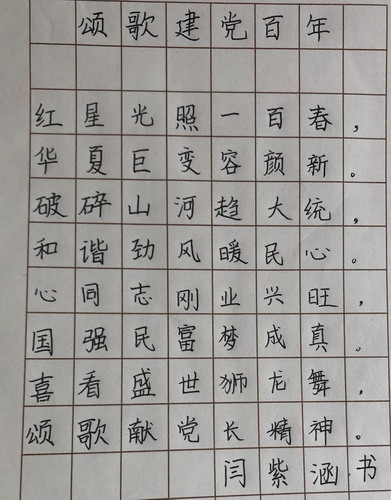 颂歌建党百年
红星光照一百春，
华夏巨变容颜新。
破碎山河趋大统，
和谐劲风暖民心。
心同志刚业兴旺，
国强民富梦成真。
喜看盛世狮龙舞，
颂歌献党长精神。
闫紫涵书